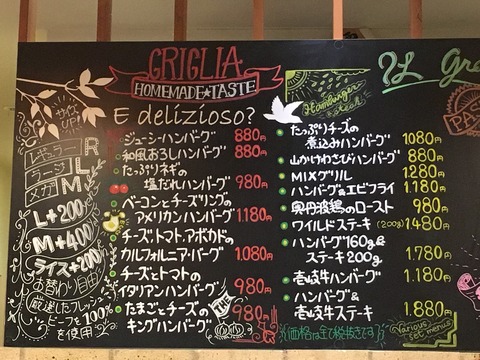 GRIGLIA
HOMEMADE★TASTE
E delizioso?
ジューシーハンバーグ 880円
和風おろしハンバーグ 880円
たっぷりネギの
塩だれハンバーグ 980円
ベーコンとチーズリングの
アメリカンハンバーグ 1.180円
チーズ,トマト,アボカドの
カルフォルニア・バーグ 1.080円
チーズとトマトの
イタリアンハンバーグ 980円
たまごとチーズの
キングハンバーグ 980円
サイズ
UP!
レギュラー R
ラージ L
メガ M
L+200
M+400
ライス+200
お替わり自由
厳選したフレッシュ
ビーフを100%
を使用
?L Gra
Hamburger
steak
PA
たっぷりチーズの
煮込みハンバーグ 1080円
山かけわさびハンバーグ 880円
MIXグリル 1.280円
ハンバーグ&エビフライ 1.180円
奥丹波鶏のロースト 980円
ワイルドステーキ (200g) 1.480円
ハンバーグ160g&
ステーキ200g 1.780円
壱岐牛ハンバーグ 1.180円
ハンバーグ&
壱岐牛ステーキ 1.880円
(価格は全て税抜きです)
Various
set menus